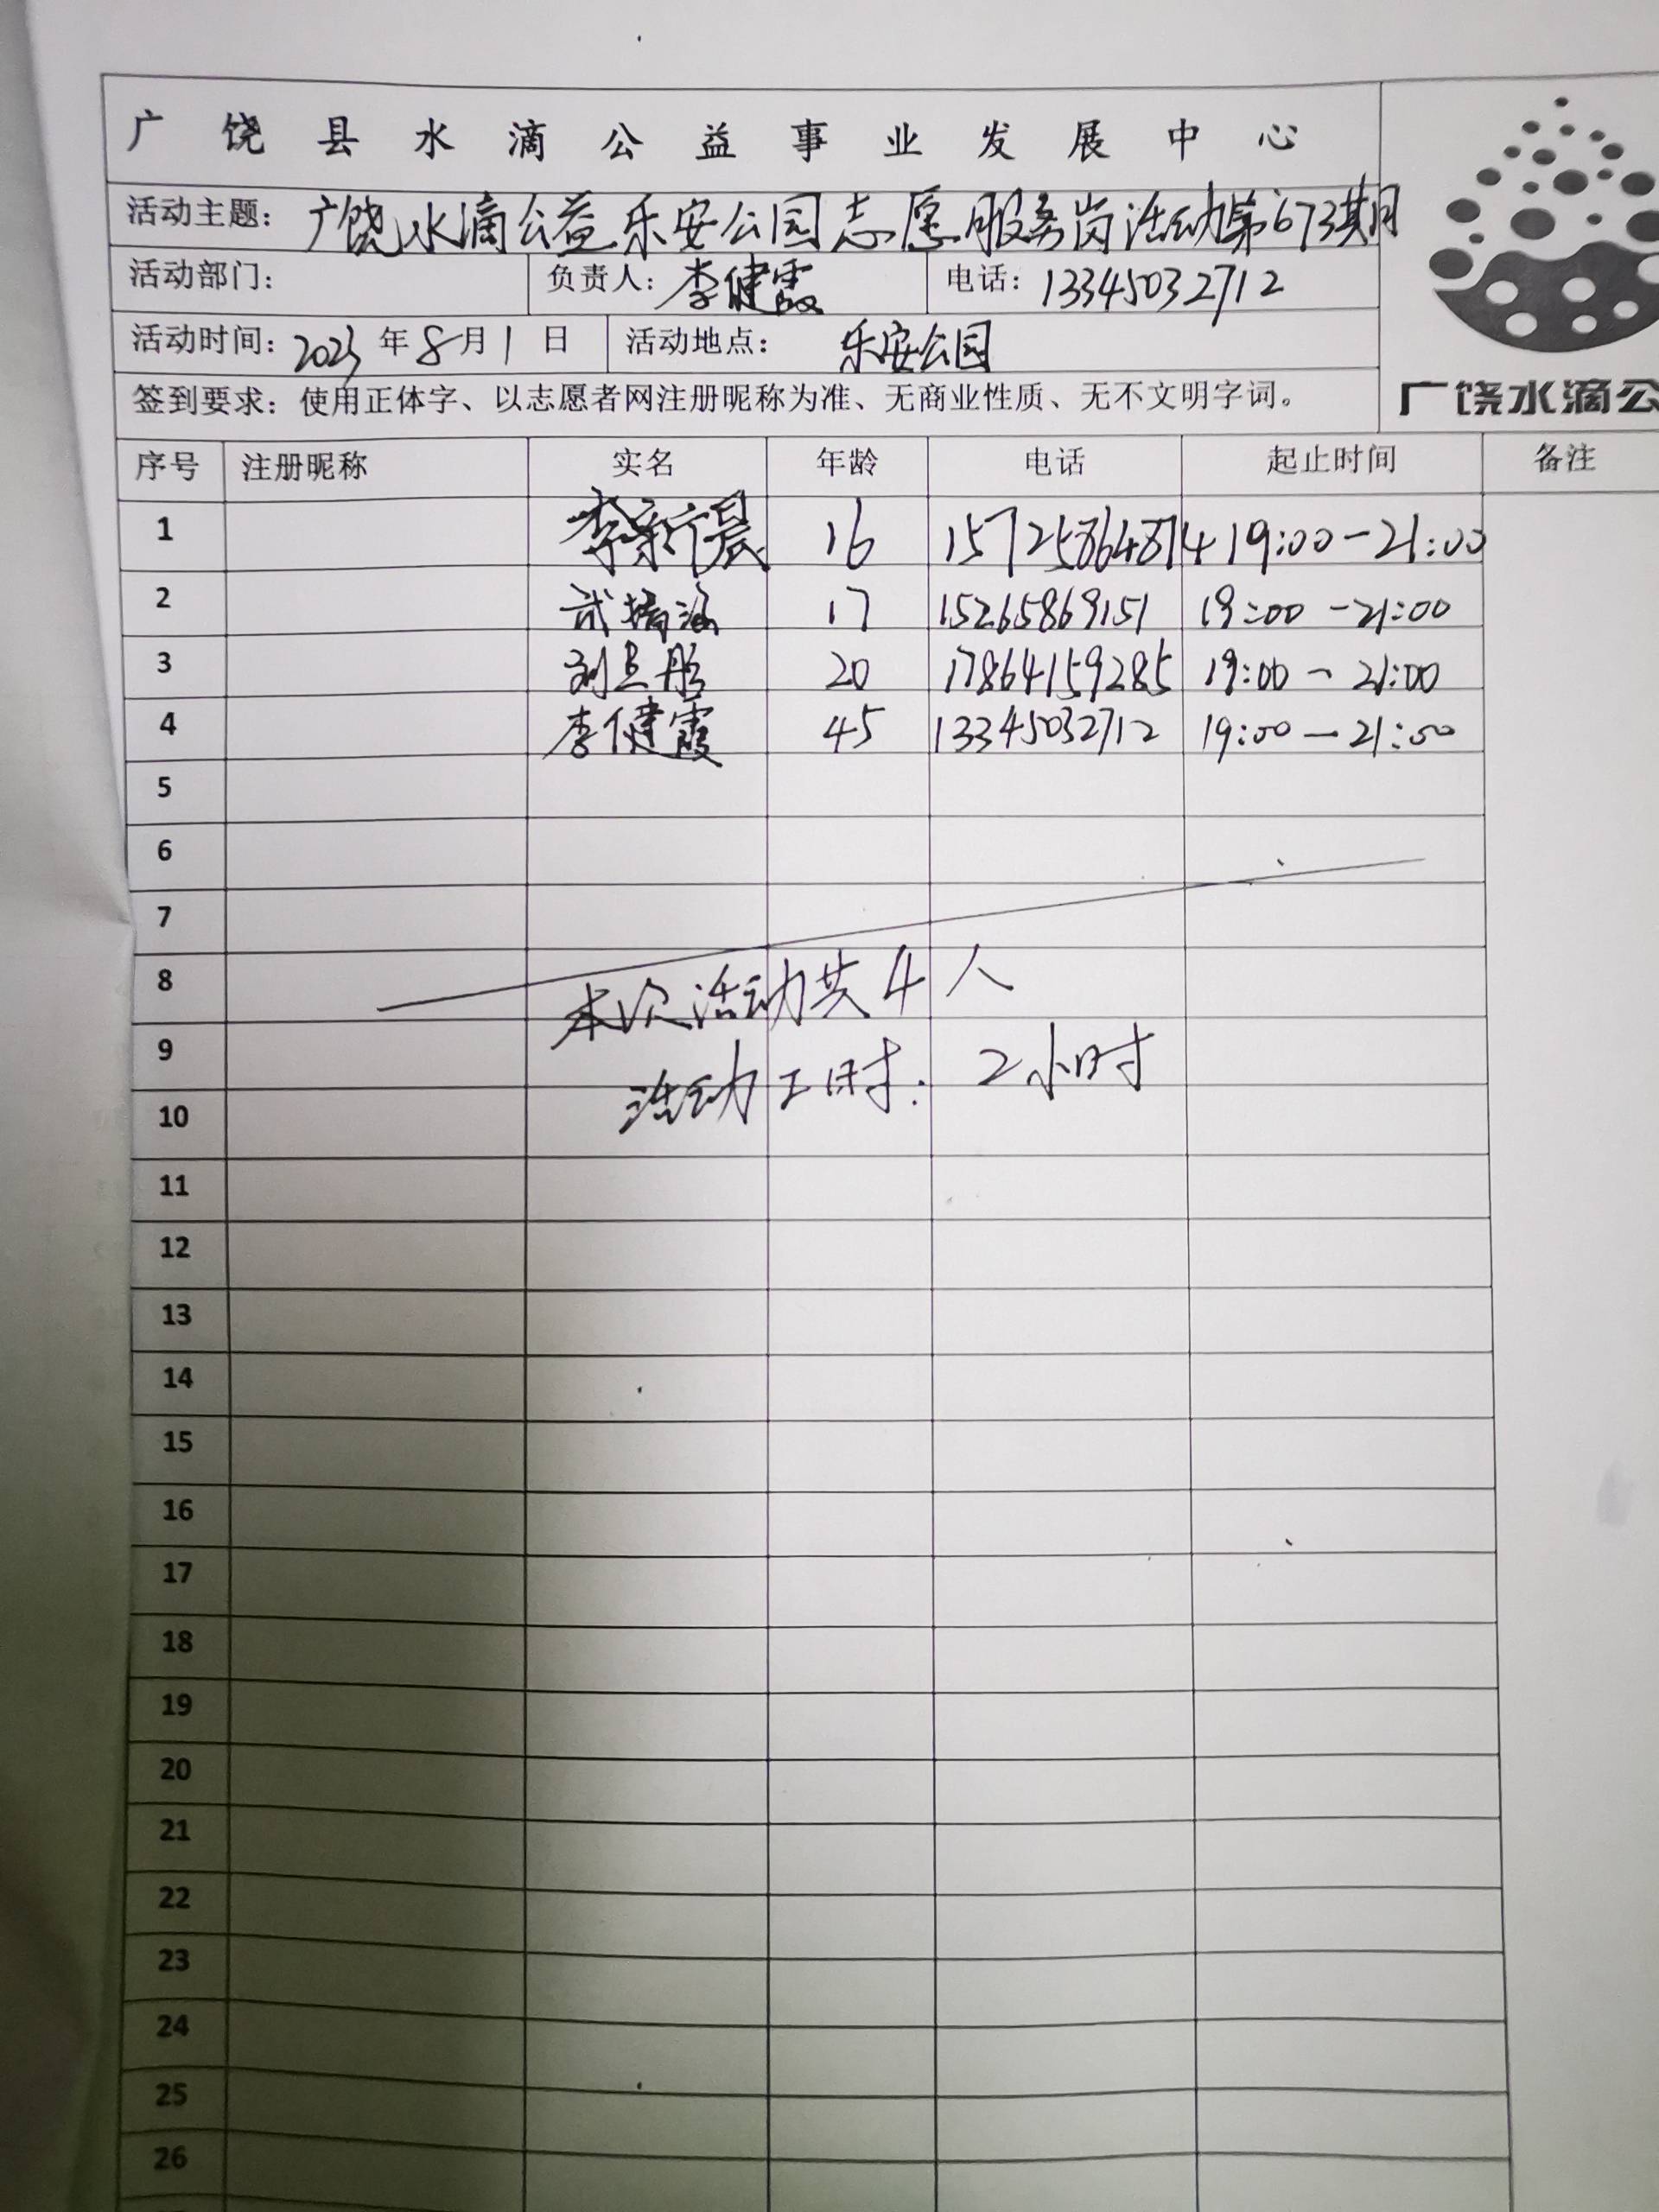 广饶县水滴公益事业发展中心
活动主题：广饶水滴公益乐安公园志愿服务岗活动第673期
活动部门： 负责人：李健霞 电话：13345032712
活动时间：2023年8月1日 活动地点：乐安公园
签到要求：使用正体字、以志愿者网注册昵称为准、无商业性质、无不文明字词。
广饶水滴公
序号 注册昵称 实名 年龄 电话 起止时间 备注
1 李新晨 16 15725864874 19:00-21:00
2 武 涵 17 15265869151 19:00-21:00
3 刘 彤 20 17864159285 19:00-21:00
4 李健霞 45 13345032712 19:00-21:00
5
6
7
8 本次活动共4人
9 活动工时：2小时
10
11
12
13
14
15
16
17
18
19
20
21
22
23
24
25
26